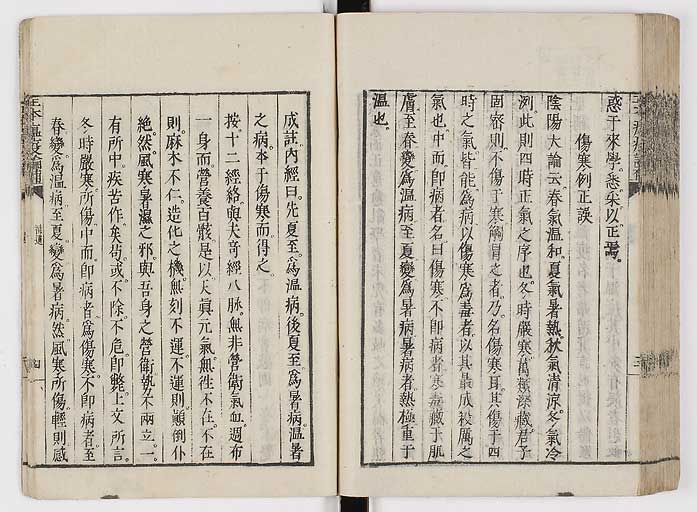 惑于來學悉采以正焉。
傷寒例正誤
陰陽大論云。春氣溫和。夏氣暑熱。秋氣清涼。冬氣冷
冽。此則四時正氣之序也。冬時嚴寒。萬類深藏。君子
固密。則不傷于寒。觸冒之者。乃名傷寒耳。其傷于四
時之氣。皆能爲病。以傷寒爲毒者。以其最成殺厲之
氣也。中而即病者。名曰傷寒。不即病者。寒毒藏于肌
膚。至春變爲溫病。至夏變爲暑病。暑病者。熱極重于
溫也。
成註。內經曰。先夏至爲溫病。後夏至爲暑病。溫暑
之病。本于傷寒而得之。
按。十二經絡。與夫奇經八脉。無非營衛氣血。週布
一身。而營養百骸。是以天眞元氣。無往不在。不在
則麻木不仁。造化之機。無刻不運。不運則顚倒仆
絶。然風寒暑濕之邪。與吾身之營衛。勢不兩立。一
有所中。疾苦作矣。苟或不除。不危即斃。上文所言。
冬時嚴寒所傷。中而即病者爲傷寒。不即病者。至
春變爲溫病。至夏變爲暑病。然風寒所傷。輕則感